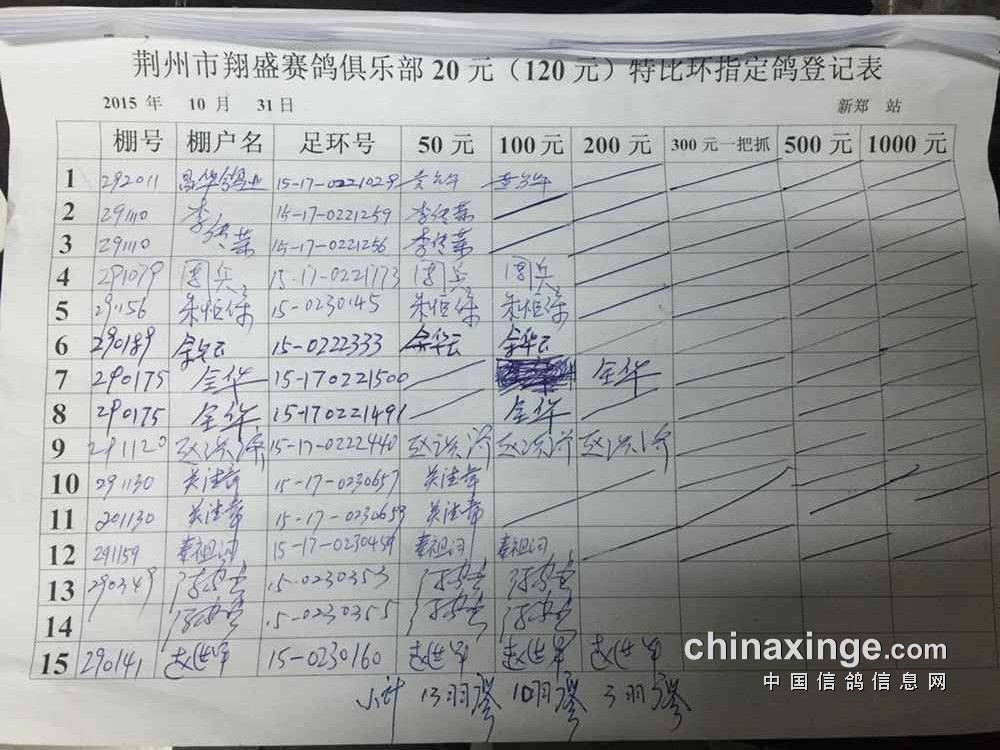 荆州市翔盛赛鸽俱乐部20元（120元）特比环指定鸽登记表
2015 年 10 月 31 日 新郑 站
棚号 棚户名 足环号 50 元 100 元 200 元 300 元一把抓 500 元 1000 元
1 292011 昌华鸽业 15-17-0221029
2 291110 李传荣 15-17-0221259 李传荣
3 291110 15-17-0221256 李传荣
4 291079 周兵 15-17-0221773 周兵 周兵
5 291156 朱恒保 15-0230145 朱恒保 朱恒保
6 290189 余华云 15-0222333 余华云 余华云
7 290175 全华 15-170221500 全华
8 290175 全华 15-170221491 全华
9 291120 15-17-0222440
10 291130 关法章 15-17-0230657 关法章
11 201130 关法章 15-17-0230659 关法章
12 291159 秦祖词 15-17-0230459 秦祖词 秦祖词
13 290349 15-0230353
14 15-0230355
15 290141 赵世军 15-0230160 赵世军 赵世军 赵世军
小计 13羽 10羽 3羽
chinaxinge.com
中国信鸽信息网